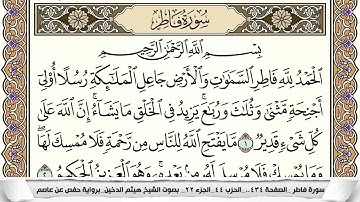 سُورَةُ فَاطِرٍ
بِسْمِ اللَّهِ الرَّحْمَٰنِ الرَّحِيمِ
الْحَمْدُ لِلَّهِ فَاطِرِ السَّمَٰوَٰتِ وَالْأَرْضِ جَاعِلِ الْمَلَٰٓئِكَةِ رُسُلًا أُو۟لِىٓ
أَجْنِحَةٍ مَّثْنَىٰ وَثُلَٰثَ وَرُبَٰعَ ۚ يَزِيدُ فِى الْخَلْقِ مَا يَشَآءُ ۚ إِنَّ اللَّهَ عَلَىٰ
كُلِّ شَىْءٍ قَدِيرٌ ١ مَّا يَفْتَحِ اللَّهُ لِلنَّاسِ مِن رَّحْمَةٍ فَلَا مُمْسِكَ لَهَا ۖ
وَمَا يُمْسِكْ فَلَا مُرْسِلَ لَهُۥ مِنۢ بَعْدِهِۦ ۚ وَهُوَ الْعَزِيزُ الْحَكِيمُ ٢
سورة فاطر_الصفحة ٤٣٤_ الحزب ٤٤_الجزء ٢٢_ بصوت الشيخ هيثم الدخين_برواية حفص عن عاصم